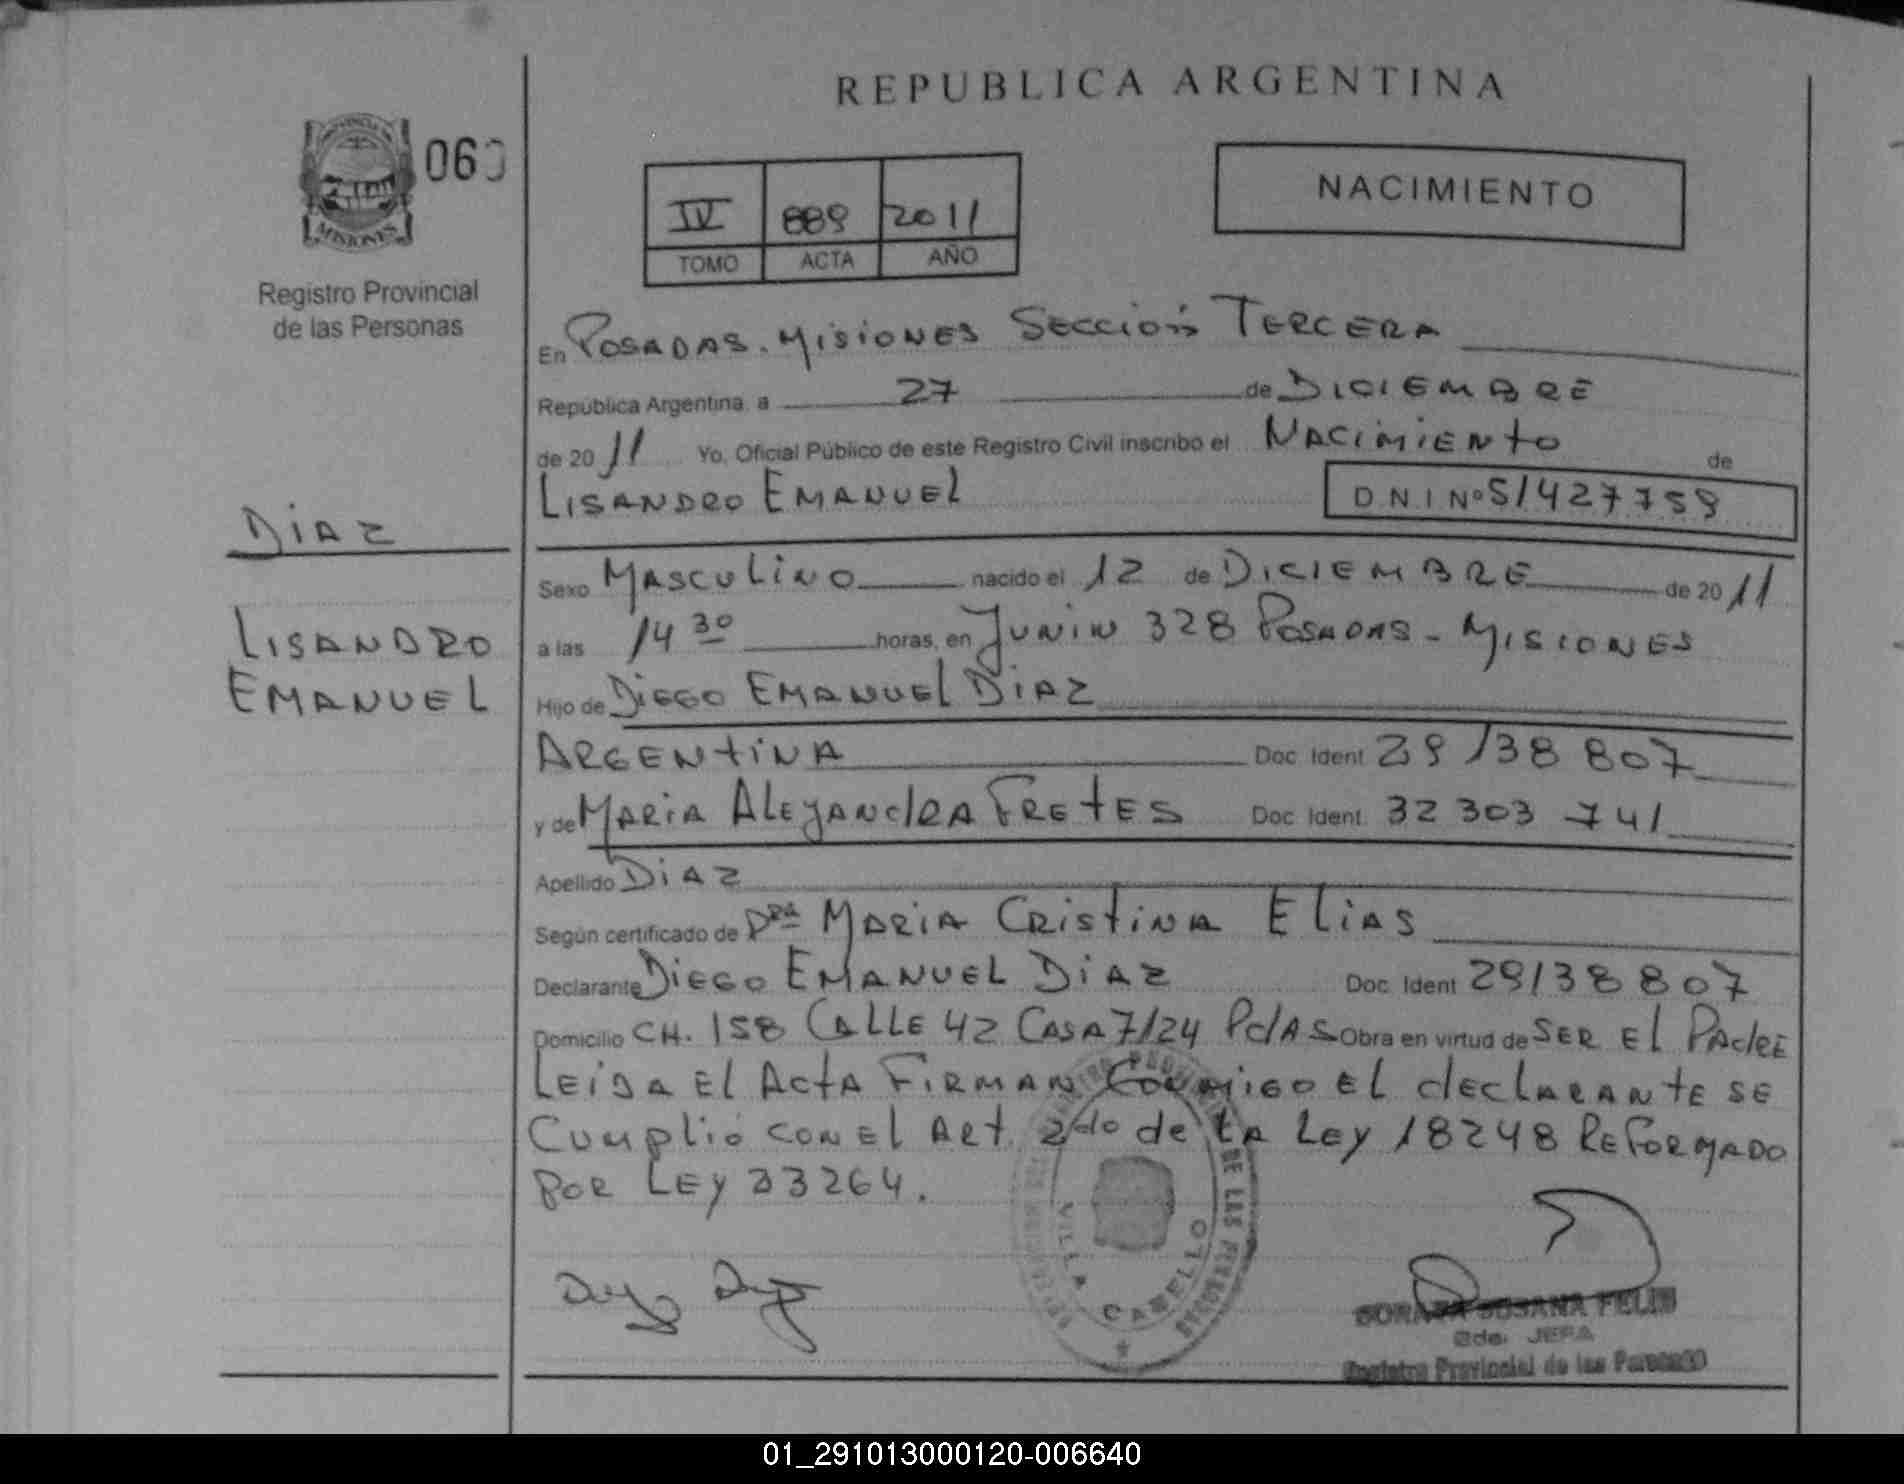 REPUBLICA ARGENTINA
PROVINCIA DE
MISIONES
060
Registro Provincial
de las Personas
IV 889 2011
TOMO ACTA AÑO
NACIMIENTO
En POSADAS. MISIONES SECCIÓN TERCERA
República Argentina, a 27 de DICIEMBRE
de 2011 Yo, Oficial Público de este Registro Civil inscribo el NACIMIENTO de
LISANDRO EMANUEL D N I Nº 51427759
DIAZ
LISANDRO
EMANUEL
Sexo MASCULINO nacido el 12 de DICIEMBRE de 2011
a las 14 30 horas, en JUNIN 328 POSADAS - MISIONES
Hijo de DIEGO EMANUEL DIAZ
ARGENTINA Doc Ident 29138807
y de MARIA ALEJANdRA FRETES Doc Ident 32303741
Apellido DIAZ
Según certificado de DRA MARIA CRISTINA ELIAS
Declarante DIEGO EMANUEL DIAZ Doc Ident 29138807
Domicilio CH. 158 CALLE 42 CASA 7/24 PdAS Obra en virtud de SER EL PAdRE
LEIDA EL ACTA FIRMAN CONMIGO EL dECLARANTE SE
CUMPLIÓ CON EL ART. 2do de LA LEY 18248 REFORMADO
POR LEY 23264.
DE LAS PERSONAS
VILLA CABELLO
SUSANA
2da. JEFA
Registro Provincial de las Personas
01_291013000120-006640